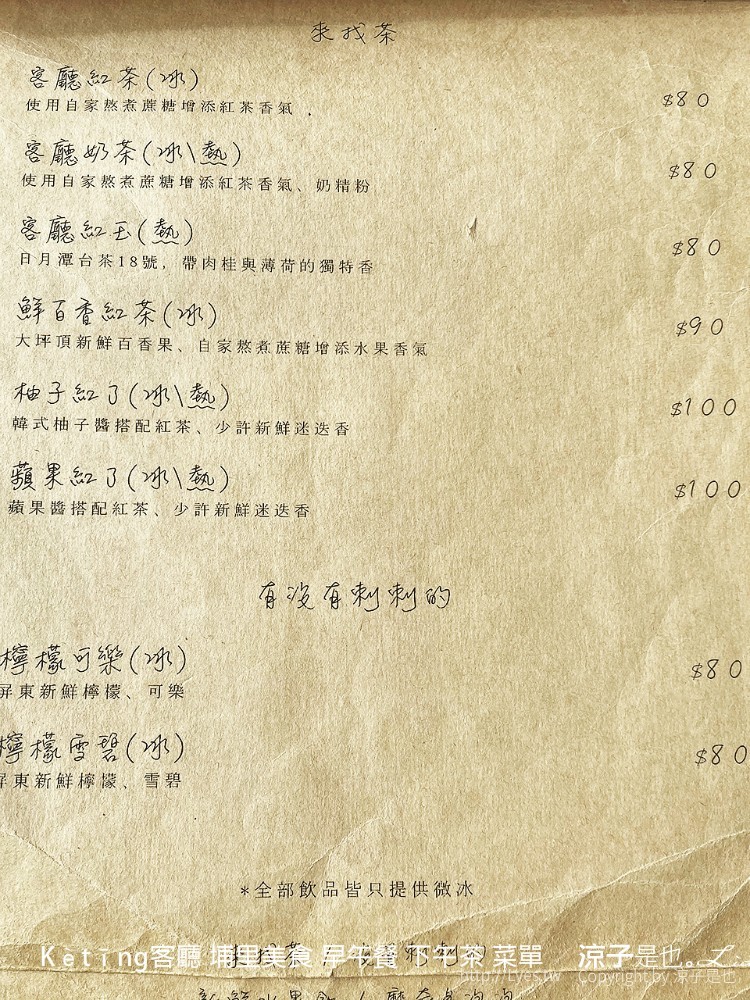 來找茶
客廳紅茶(冰)
$80
使用自家熬煮蔗糖增添紅茶香氣
客廳奶茶(冰\熱)
$80
使用自家熬煮蔗糖增添紅茶香氣、奶精粉
客廳紅玉(熱)
$80
日月潭台茶18號, 帶肉桂與薄荷的獨特香
鮮百香紅茶(冰)
$90
大坪頂新鮮百香果、自家熬煮蔗糖增添水果香氣
柚子紅了(冰\熱)
$100
韓式柚子醬搭配紅茶、少許新鮮迷迭香
蘋果紅了(冰\熱)
$100
蘋果醬搭配紅茶、少許新鮮迷迭香
有沒有刺刺的
檸檬可樂(冰)
$80
屏東新鮮檸檬、可樂
檸檬雪碧(冰)
$80
屏東新鮮檸檬、雪碧
*全部飲品皆只提供微冰
Keting客廳 埔里美食 早午餐 下午茶 菜單 涼子是也
Copyright by 涼子是也